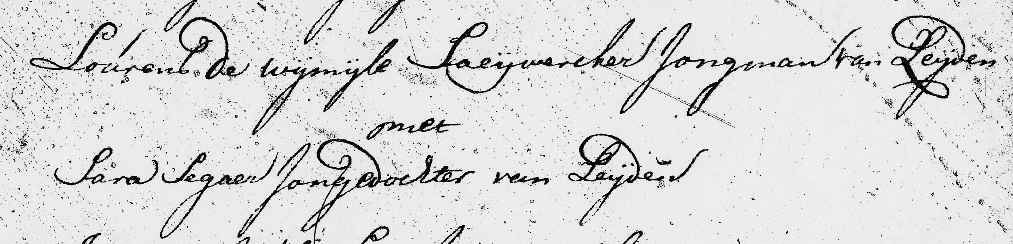 Lourens de wijmijle Saeijwercker Jongman van Leijden
met
Sara Segaer Jongedochter van Leijden